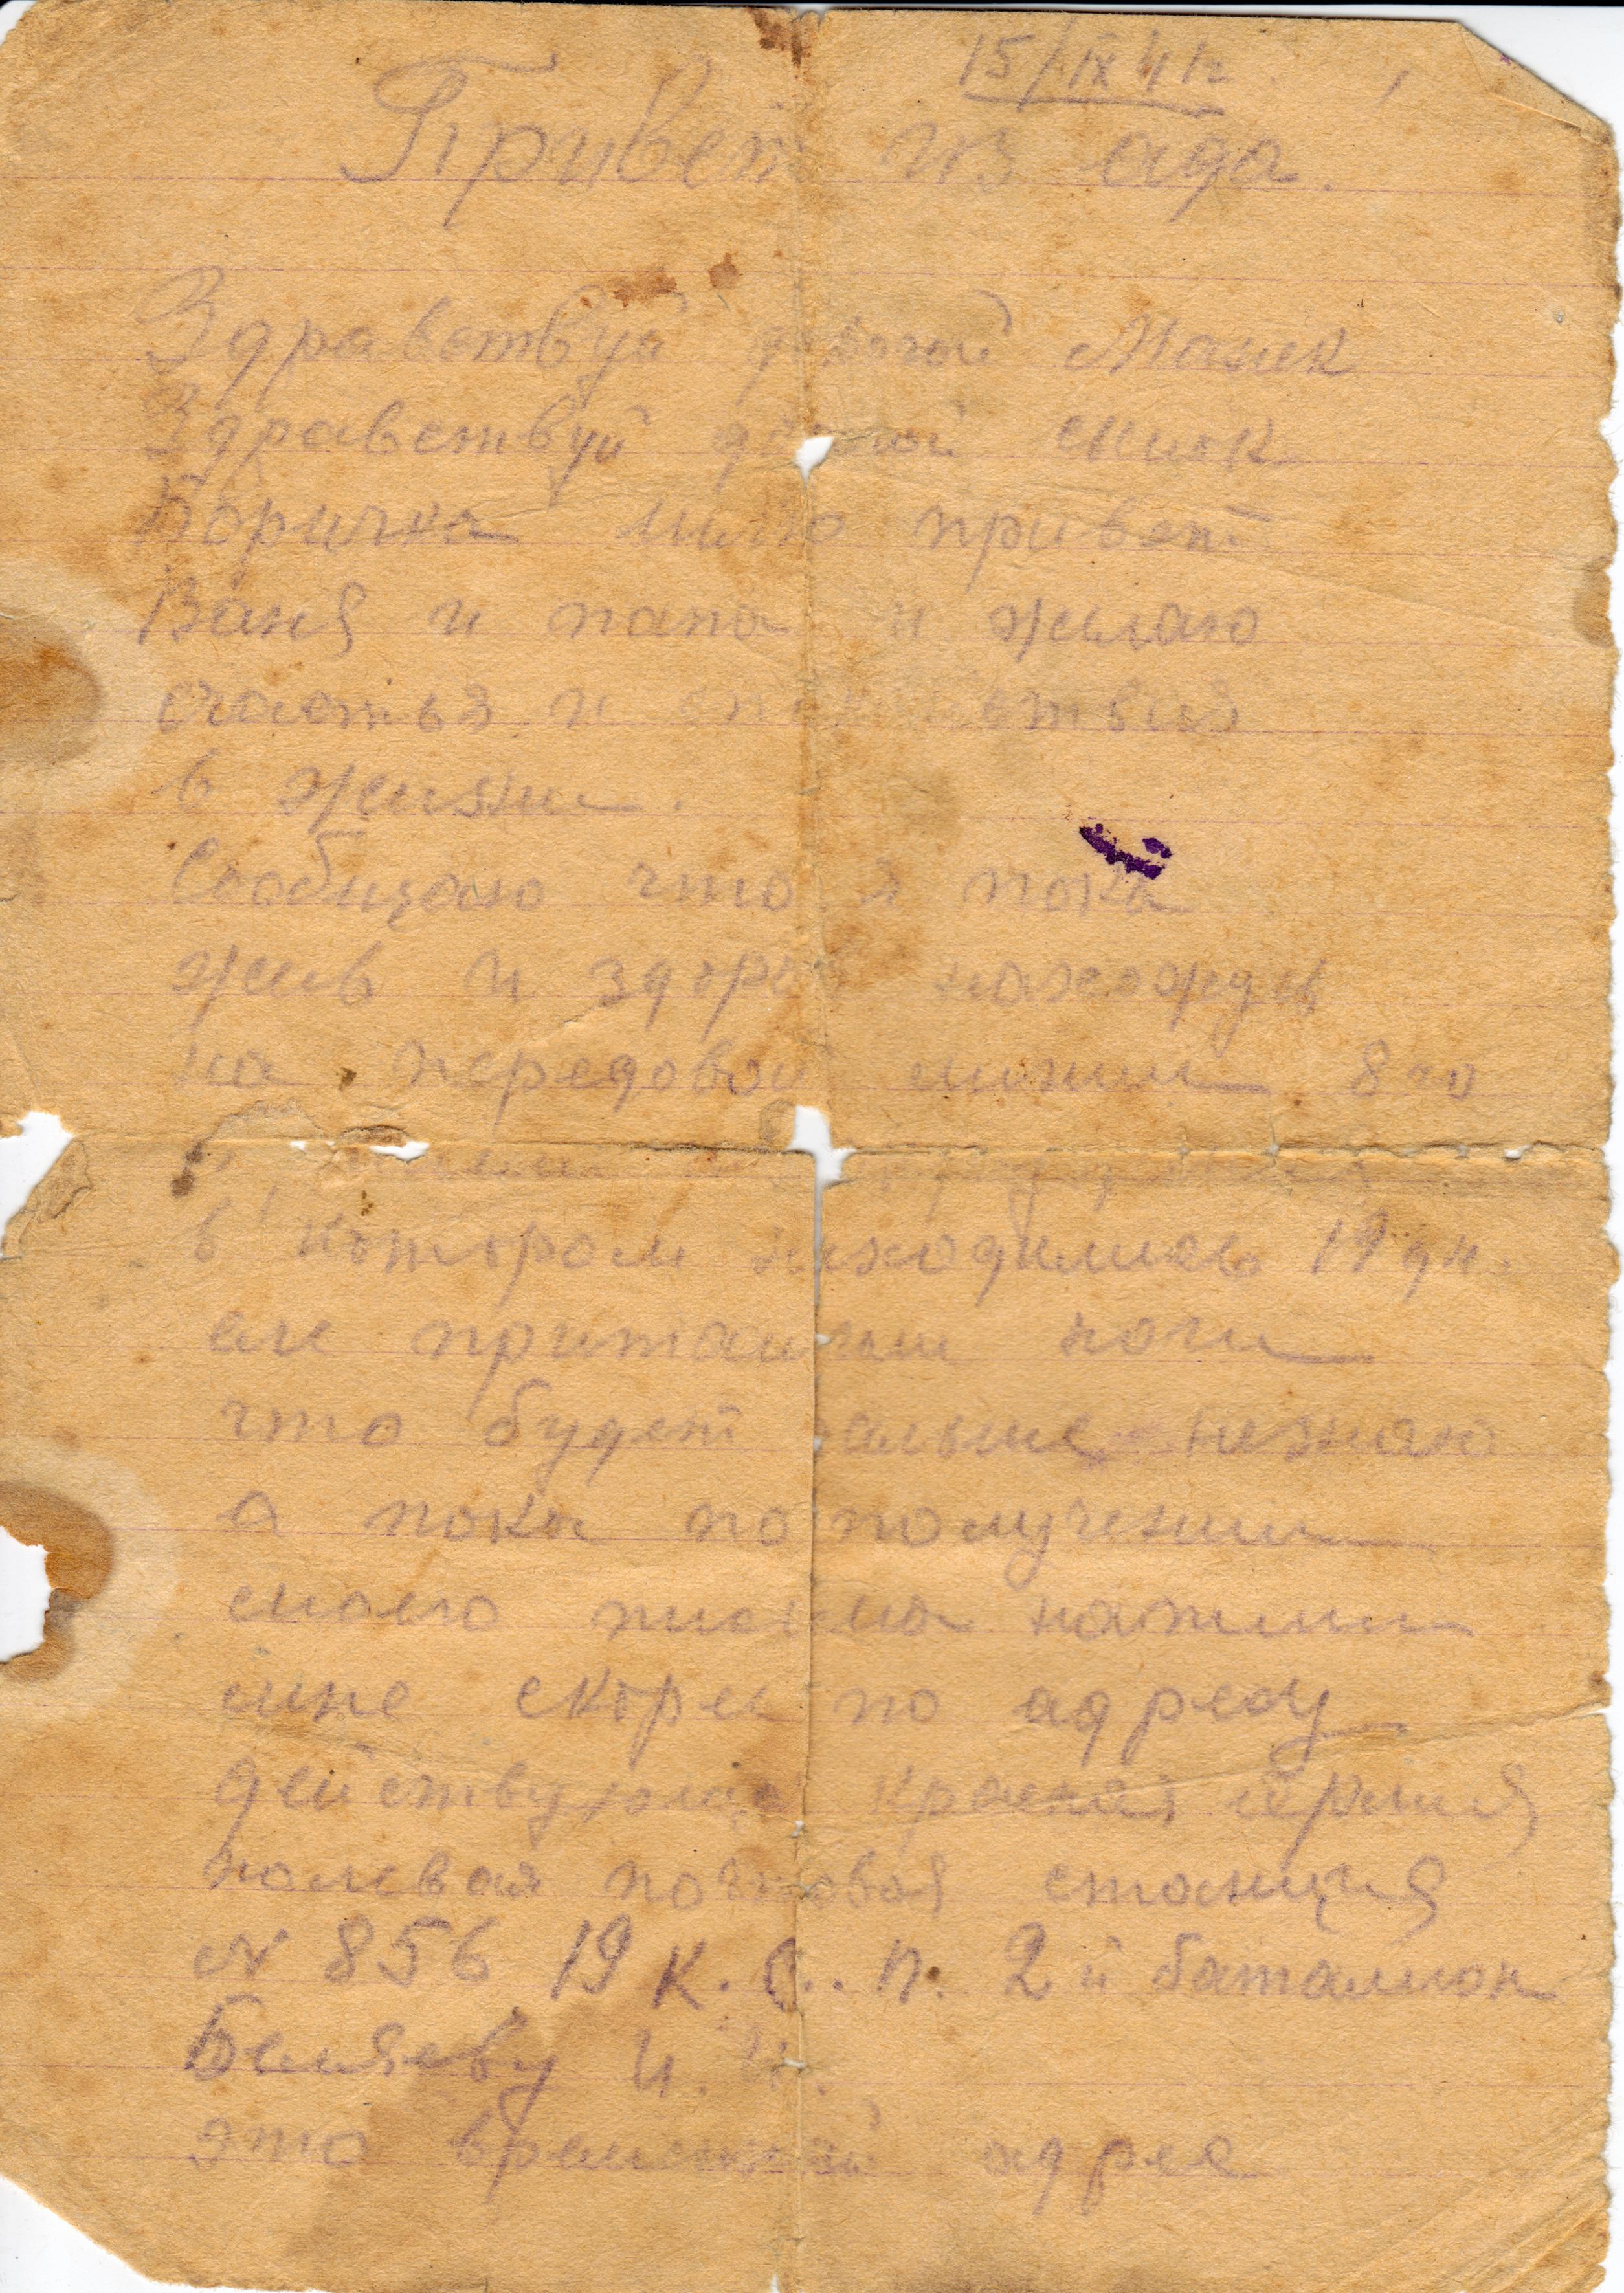 15/IX 41 г
Привет из ада.
Здравствуй дорогой Манек
Здравствуй дорогой сынок
Боричка шлю привет
Ваня и папа и желаю
счастья и спокойствия
в жизни.
Сообщаю что я пока
жив и здоров нахожусь
на передовой линии 8 го
в котором находились 19 дн.
ели притащили ноги
что будет дальше незнаю
а пока по получении
моего письма напиши
мне скорее по адресу
действующая Красная армия
полевая почтовая станция
№ 856 19 К. С. П. 2й баталион
Беляеву И. И.
это временный адрес